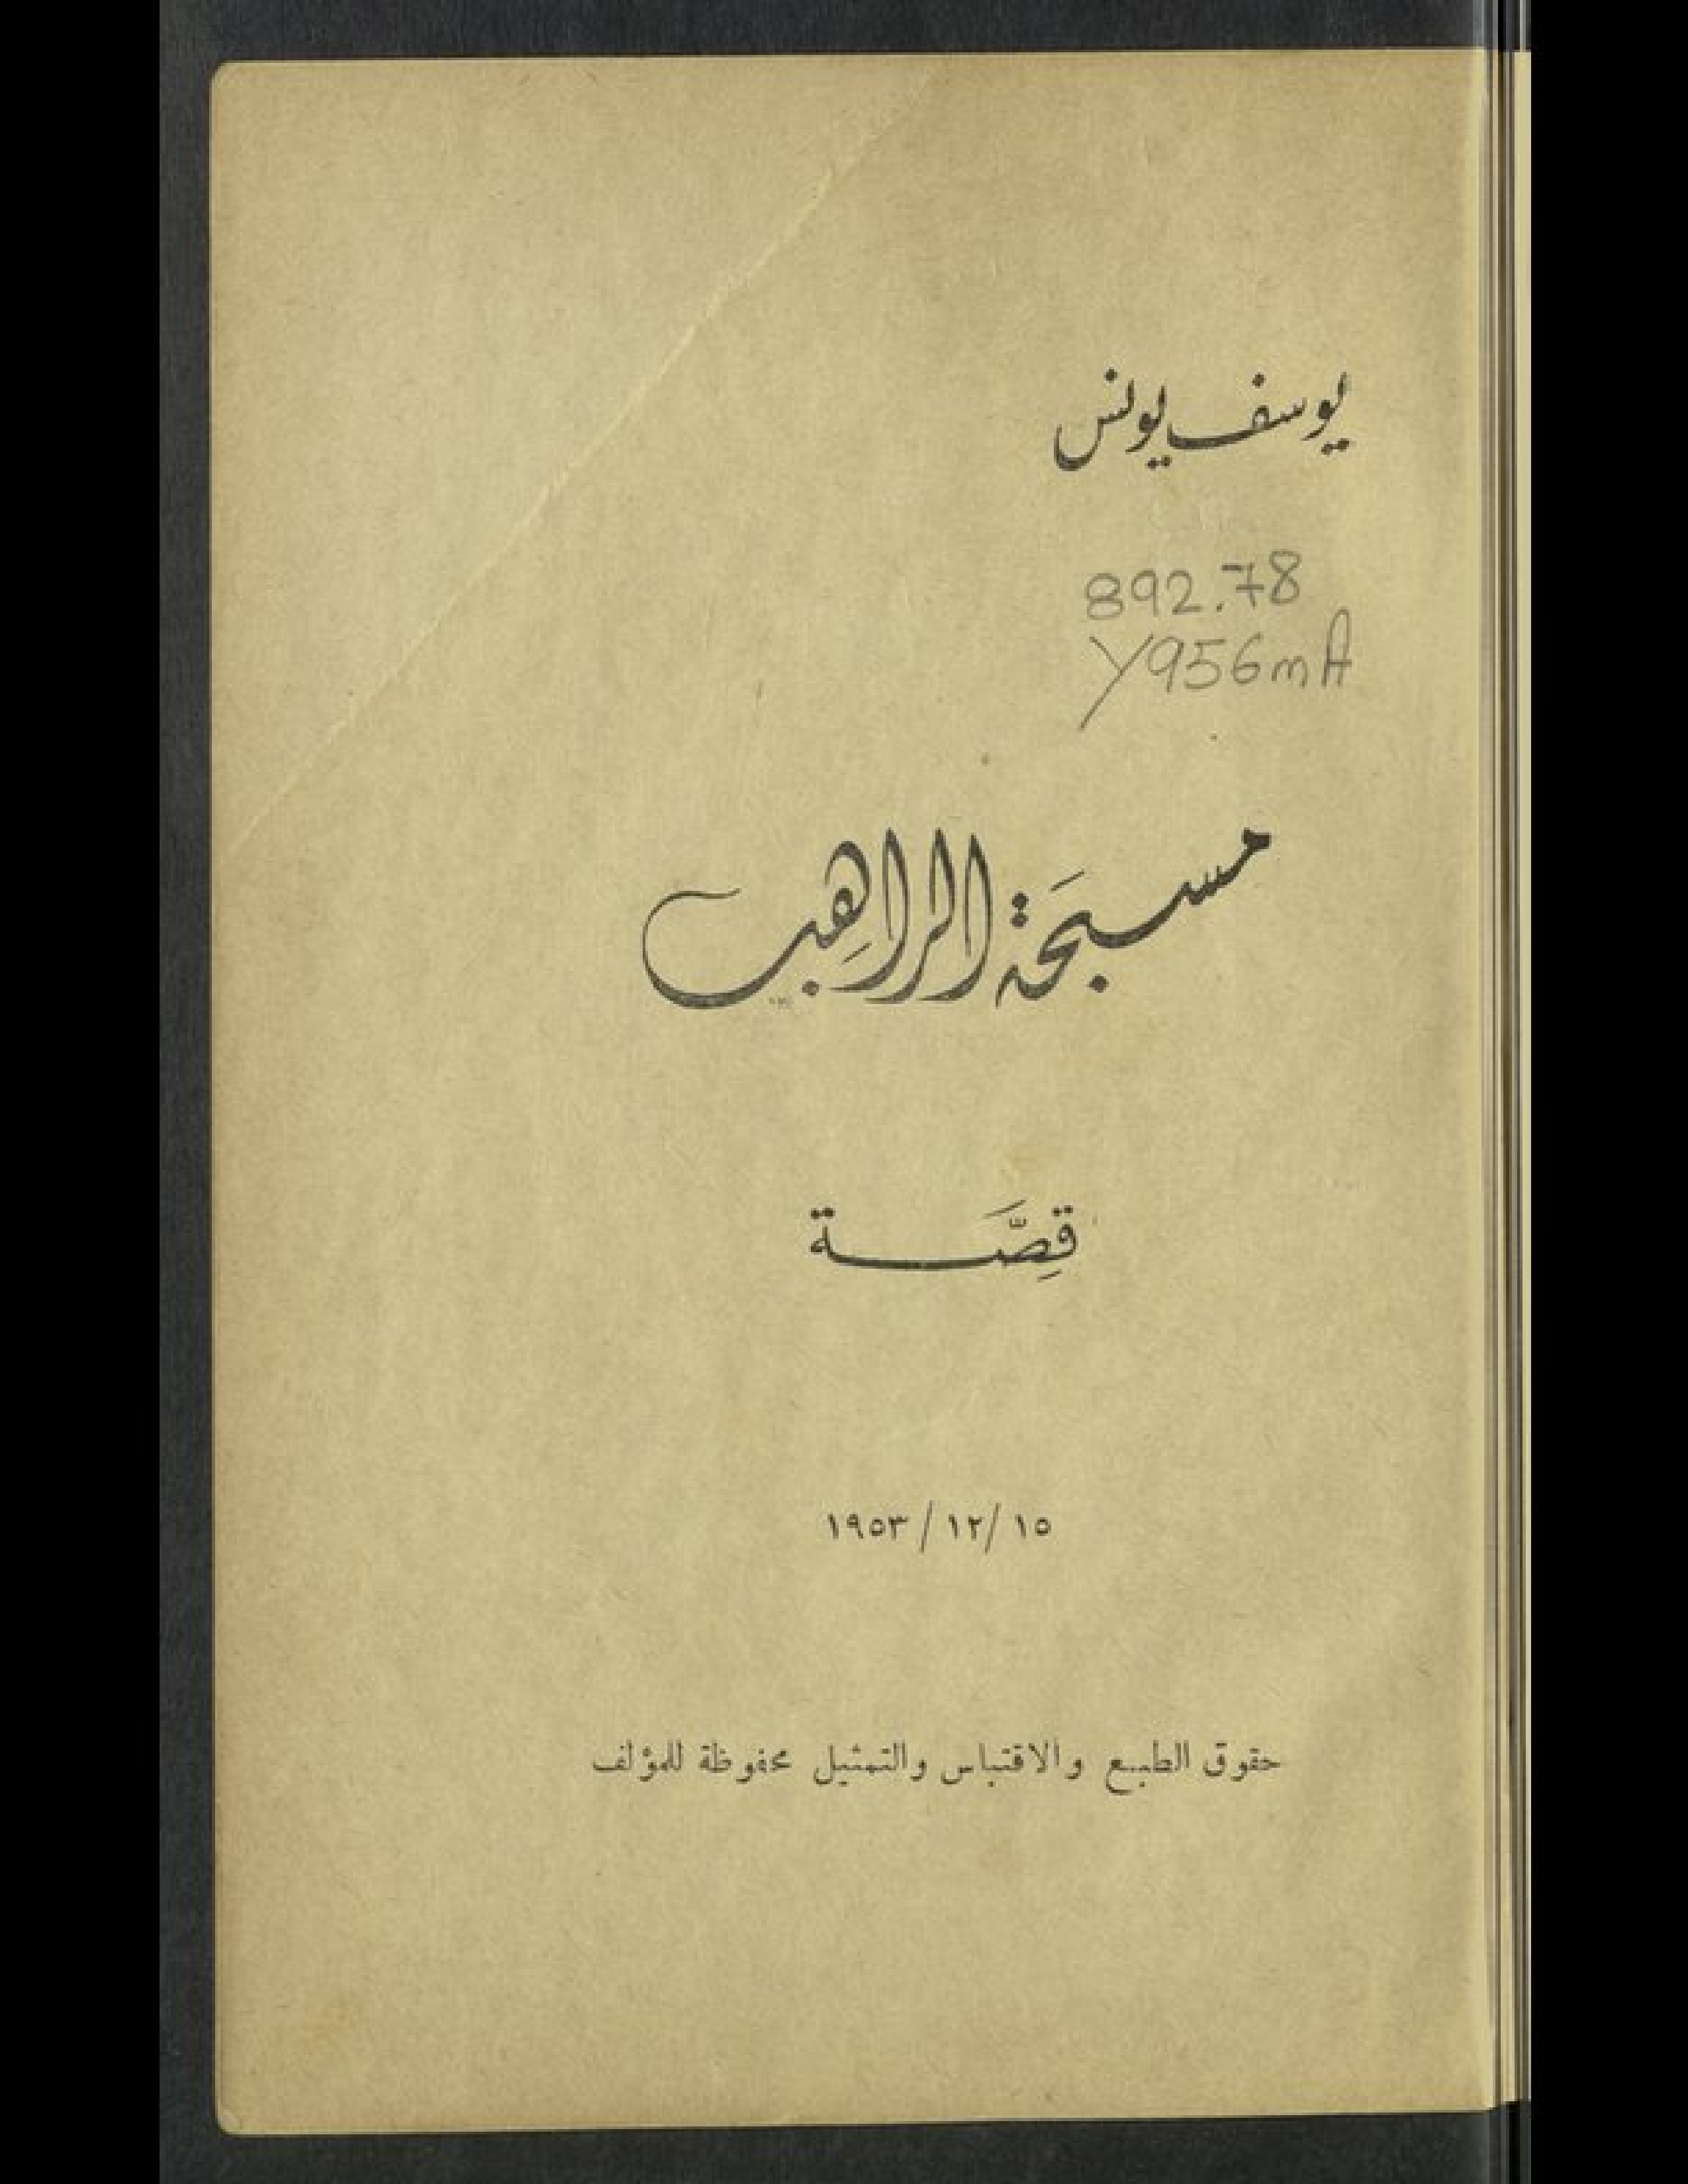 يوسف يونس
892.78
Y956mA
مسبحَة الراهِب
قِصَّة
١٥ /١٢ / ١٩٥٣
حقوق الطبع والاقتباس والتمثيل محفوظة للمؤلف